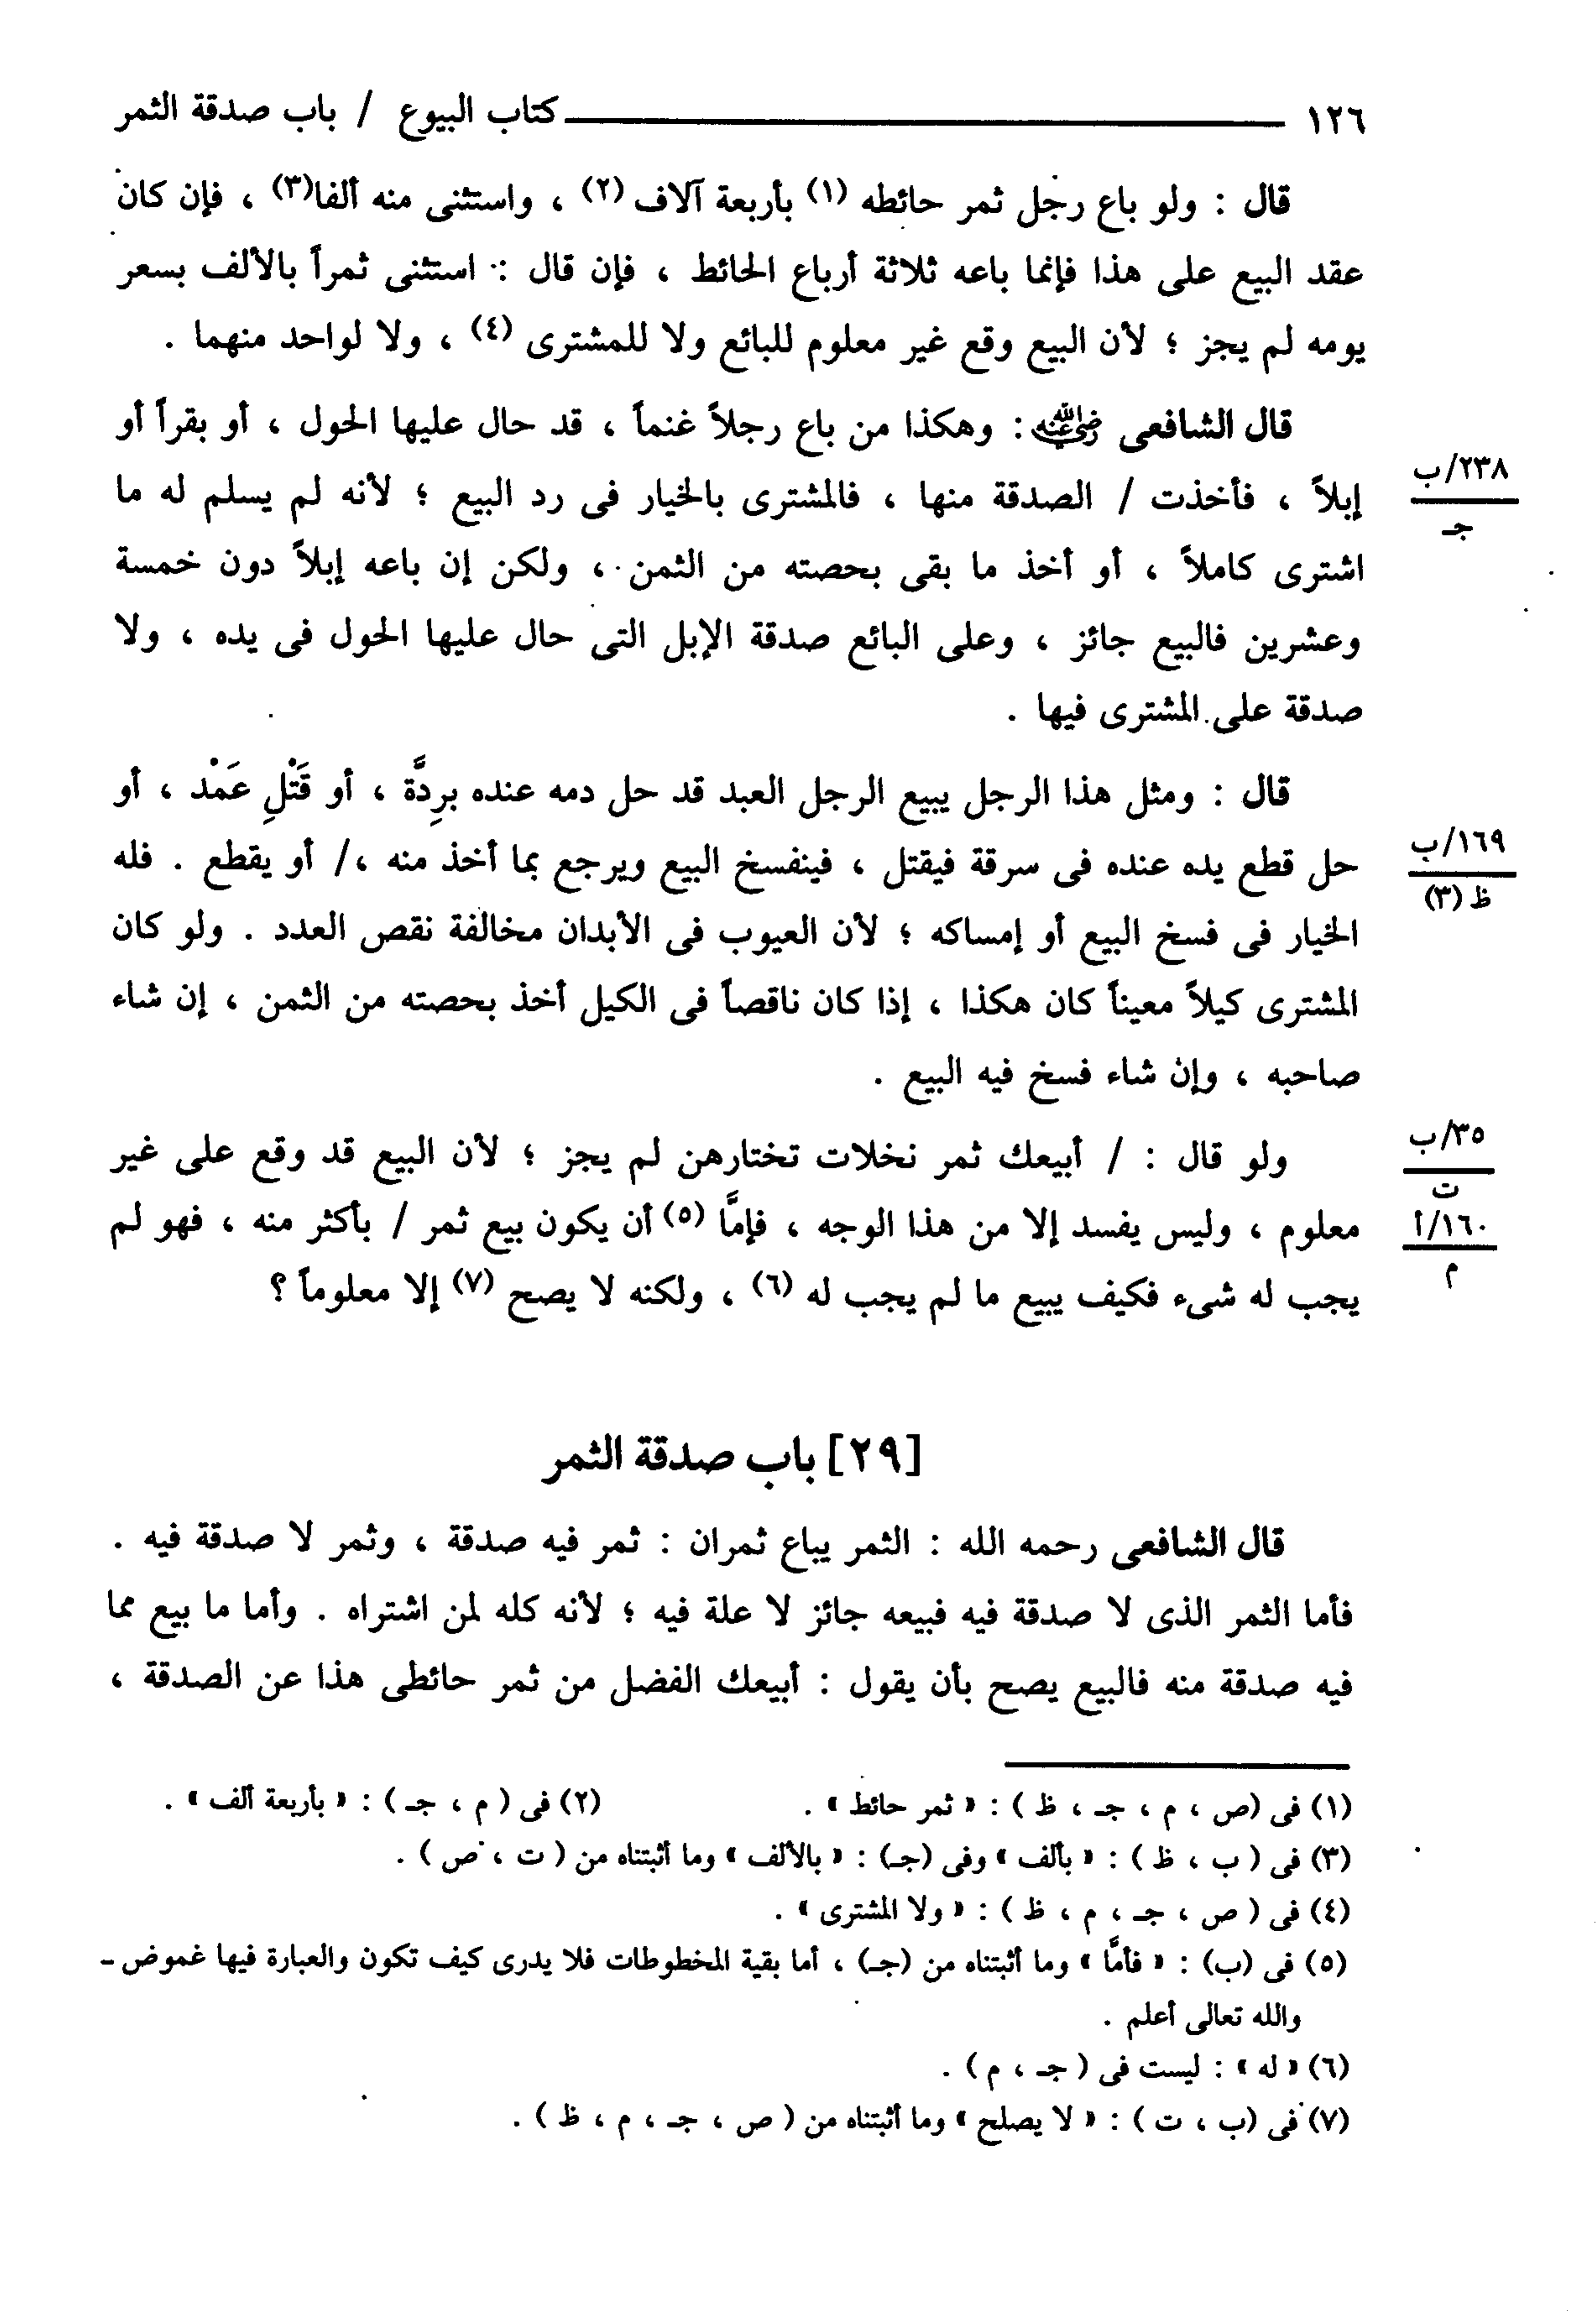 ١٢٦ ــــــ كتاب البيوع / باب صدقة الثمر
قال : ولو باع رجل ثمر حائطه (١) بأربعة آلاف (٢) ، واستثنى منه ألفا(٣) ، فإن كان
عقد البيع على هذا فإنما باعه ثلاثة أرباع الحائط ، فإن قال : استثنى ثمراً بالألف بسعر
يومه لم يجز ؛ لأن البيع وقع غير معلوم للبائع ولا للمشترى (٤) ، ولا لواحد منهما .
قال الشافعى رضي الله عنه : وهكذا من باع رجلاً غنماً ، قد حال عليها الحول ، أو بقراً أو
٢٣٨/ب
جـ
إبلاً ، فأخذت / الصدقة منها ، فالمشترى بالخيار فى رد البيع ؛ لأنه لم يسلم له ما
اشترى كاملاً ، أو أخذ ما بقى بحصته من الثمن ، ولكن إن باعه إبلاً دون خمسة
وعشرين فالبيع جائز ، وعلى البائع صدقة الإبل التى حال عليها الحول فى يده ، ولا
صدقة على المشترى فيها .
قال : ومثل هذا الرجل يبيع الرجل العبد قد حل دمه عنده برِدَّة ، أو قَتْلِ عَمْد ، أو
١٦٩/ب
ظ (٣)
حل قطع يده عنده فى سرقة فيقتل ، فينفسخ البيع ويرجع بما أخذ منه ،/ أو يقطع . فله
الخيار فى فسخ البيع أو إمساكه ؛ لأن العيوب فى الأبدان مخالفة نقص العدد . ولو كان
المشترى كيلاً معيناً كان هكذا ، إذا كان ناقصاً فى الكيل أخذ بحصته من الثمن ، إن شاء
صاحبه ، وإن شاء فسخ فيه البيع .
٣٥/ب
ت
ولو قال : / أبيعك ثمر نخلات تختارهن لم يجز ؛ لأن البيع قد وقع على غير
١٦٠/أ
م
معلوم ، وليس يفسد إلا من هذا الوجه ، فإمَّا (٥) أن يكون بيع ثمر / بأكثر منه ، فهو لم
يجب له شىء فكيف يبيع ما لم يجب له (٦) ، ولكنه لا يصح (٧) إلا معلوماً ؟
[٢٩] باب صدقة الثمر
قال الشافعى رحمه الله : الثمر يباع ثمران : ثمر فيه صدقة ، وثمر لا صدقة فيه .
فأما الثمر الذى لا صدقة فيه فبيعه جائز لا علة فيه ؛ لأنه كله لمن اشتراه . وأما ما بيع مما
فيه صدقة منه فالبيع يصح بأن يقول : أبيعك الفضل من ثمر حائطى هذا عن الصدقة ،
(١) فى (ص ، م ، جـ ، ظ ) : « ثمر حائط » . (٢) فى ( م ، جـ ) : « بأربعة ألف » .
(٣) فى ( ب ، ظ ) : « بألف » وفى (جـ) : « بالألف » وما أثبتناه من ( ت ، ص ) .
(٤) فى ( ص ، جـ ، م ، ظ ) : « ولا المشترى » .
(٥) فى (ب) : « فأمَّا » وما أثبتناه من (جـ) ، أما بقية المخطوطات فلا يدرى كيف تكون والعبارة فيها غموض ـ
والله تعالى أعلم .
(٦) « له » : ليست فى ( جـ ، م ) .
(٧) فى (ب ، ت ) : « لا يصلح » وما أثبتناه من ( ص ، جـ ، م ، ظ ) .